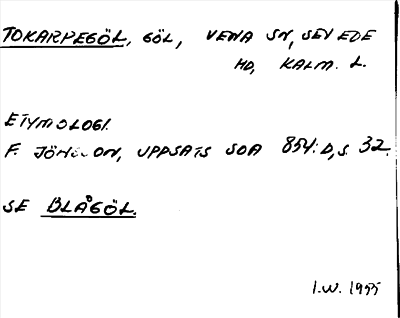 TOKARPEGÖL, GÖL, VENA SN, SEVEDE
HD, KALM. L.
ETYMOLOGI.
F. UPPSATS SOA 854:D, S. 32.
SE BLÅGÖL.
I.W. 1955